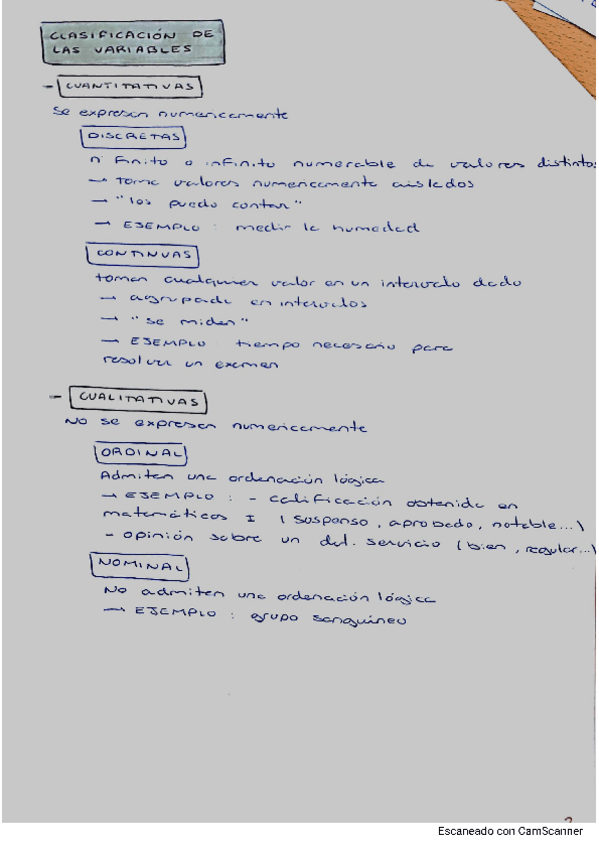 CLASIFICACIÓN DE
LAS VARIABLES
- CUANTITATIVAS
Se expresan numericamente
DISCRETAS
nº finito o infinito numerable de valores distintos
→ toma valores numericamente aislados
→ "los puedo contar"
→ EJEMPLO : medir la humedad
CONTINUAS
toman cualquier valor en un intervalo dado
→ agrupada en intervalos
→ "se miden"
→ EJEMPLO : tiempo necesario para
resolver un examen
- CUALITATIVAS
NO se expresan numericamente
ORDINAL
Admiten una ordenación lógica
→ EJEMPLO : - calificación obtenida en
matemáticas I (suspenso, aprobado, notable...)
- opinión sobre un det. servicio (bien, regular...)
NOMINAL
No admiten una ordenación lógica
→ EJEMPLO : grupo sanguíneo
Escaneado con CamScanner